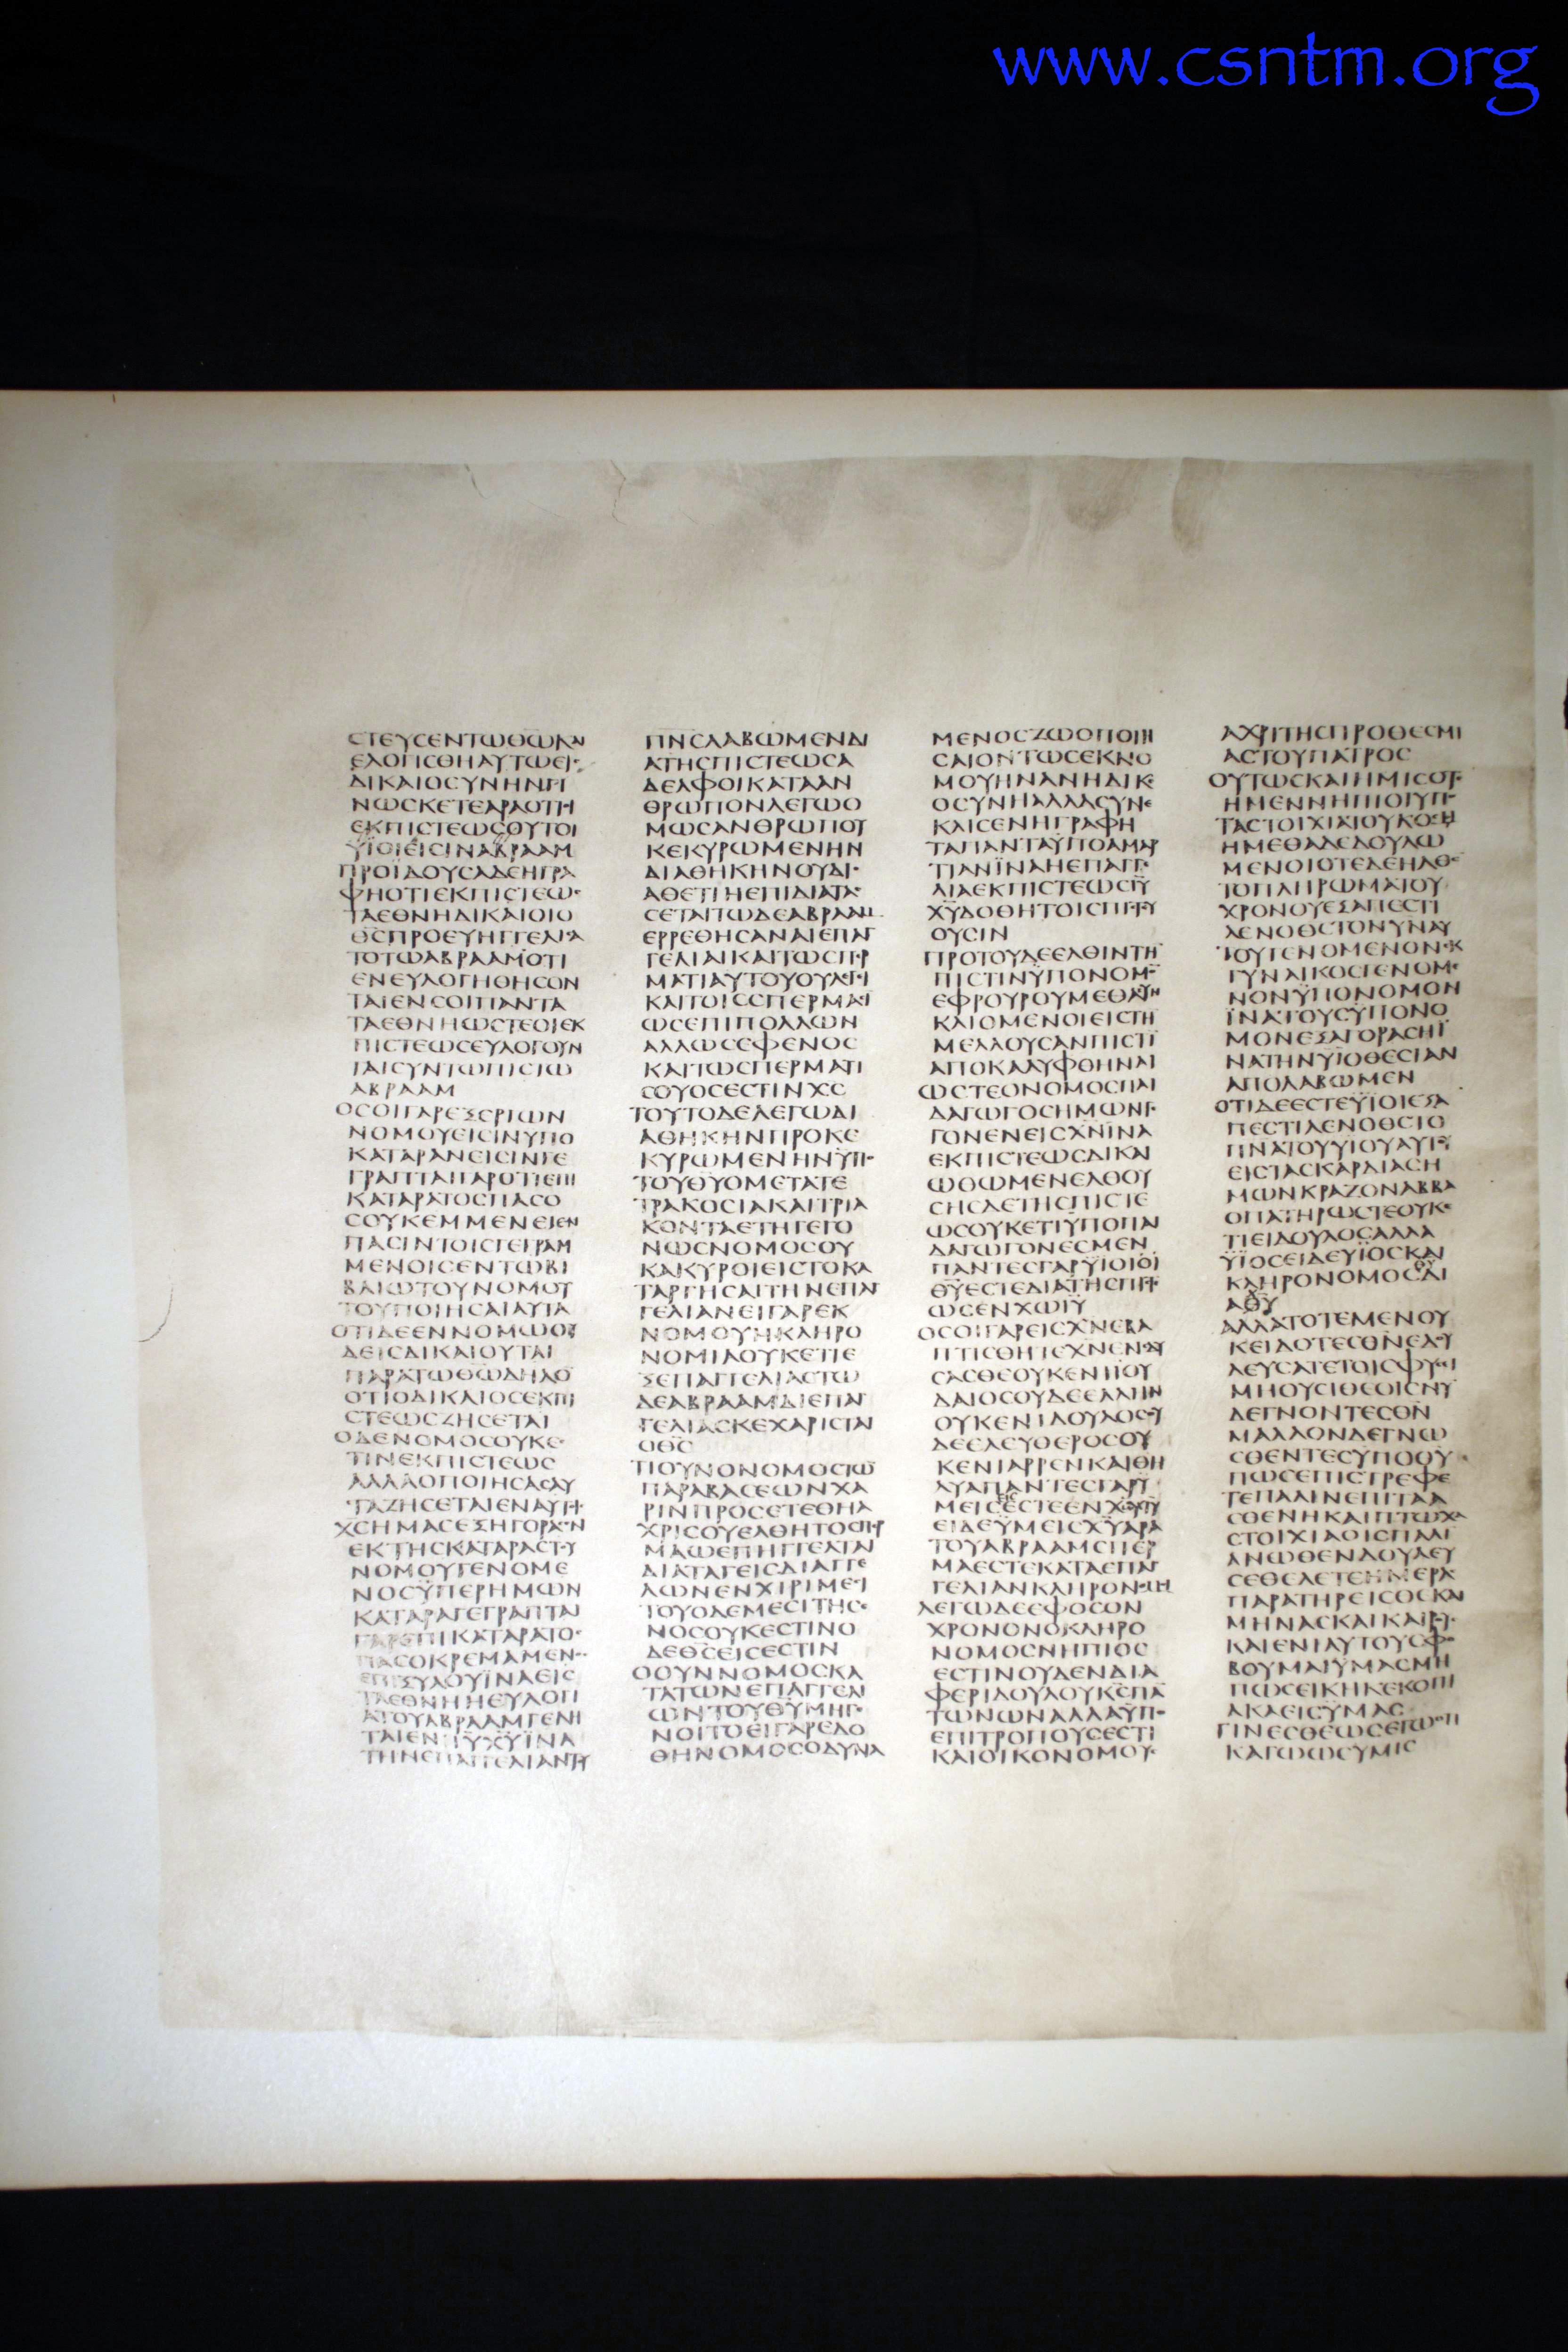 www.csntm.org
ϹΤΕΥϹΕΝΤΩΘΩΚΑΙ
ΕΛΟΓΙϹΘΗΑΥΤΩΕΙϹ
ΔΙΚΑΙΟϹΥΝΗΝΓΙ
ΝΩϹΚΕΤΕΑΡΑΟΤΙΟΙ
ΕΚΠΙϹΤΕΩϹΟΥΤΟΙ
ΥΪΟΙΕΙϹΙΝΑΒΡΑΑΜ
ΠΡΟΪΔΟΥϹΑΔΕΗΓΡΑ
ΦΗΟΤΙΕΚΠΙϹΤΕΩϹ
ΤΑΕΘΝΗΔΙΚΑΙΟΙΟ
ΘϹΠΡΟΕΥΗΓΓΕΛΙϹΑ
ΤΟΤΩΑΒΡΑΑΜΟΤΙ
ΕΝΕΥΛΟΓΗΘΗϹΟΝ
ΤΑΙΕΝϹΟΙΠΑΝΤΑ
ΤΑΕΘΝΗΩϹΤΕΟΙΕΚ
ΠΙϹΤΕΩϹΕΥΛΟΓΟΥΝ
ΤΑΙϹΥΝΤΩΠΙϹΤΩ
ΑΒΡΑΑΜ
ΟϹΟΙΓΑΡΕΞΕΡΓΩΝ
ΝΟΜΟΥΕΙϹΙΝΥΠΟ
ΚΑΤΑΡΑΝΕΙϹΙΝΓΕ
ΓΡΑΠΤΑΙΓΑΡΟΤΙΕΠΙ
ΚΑΤΑΡΑΤΟϹΠΑϹΟ
ϹΟΥΚΕΜΜΕΝΕΙΕΝ
ΠΑϹΙΝΤΟΙϹΓΕΓΡΑΜ
ΜΕΝΟΙϹΕΝΤΩΒΙ
ΒΛΙΩΤΟΥΝΟΜΟΥ
ΤΟΥΠΟΙΗϹΑΙΑΥΤΑ
ΟΤΙΔΕΕΝΝΟΜΩΟΥ
ΔΕΙϹΔΙΚΑΙΟΥΤΑΙ
ΠΑΡΑΤΩΘΩΔΗΛΟ
ΟΤΙΟΔΙΚΑΙΟϹΕΚΠΙ
ϹΤΕΩϹΖΗϹΕΤΑΙ
ΟΔΕΝΟΜΟϹΟΥΚΕϹ
ΤΙΝΕΚΠΙϹΤΕΩϹ
ΑΛΛΑΟΠΟΙΗϹΑϹΑΥ
ΤΑΖΗϹΕΤΑΙΕΝΑΥΤΟΙϹ
ΧϹΗΜΑϹΕΞΗΓΟΡΑϹΕΝ
ΕΚΤΗϹΚΑΤΑΡΑϹΤΟΥ
ΝΟΜΟΥΓΕΝΟΜΕ
ΝΟϹΫΠΕΡΗΜΩΝ
ΚΑΤΑΡΑΓΕΓΡΑΠΤΑΙ
ΓΑΡΕΠΙΚΑΤΑΡΑΤΟϹ
ΠΑϹΟΚΡΕΜΑΜΕΝΟϹ
ΕΠΙΞΥΛΟΥΪΝΑΕΙϹ
ΤΑΕΘΝΗΗΕΥΛΟΓΙ
ΑΤΟΥΑΒΡΑΑΜΓΕΝΗ
ΤΑΙΕΝΙΥΧΥΪΝΑ
ΤΗΝΕΠΑΓΓΕΛΙΑΝΤΟΥ
ΠΝϹΛΑΒΩΜΕΝΔΙ
ΑΤΗϹΠΙϹΤΕΩϹΑ
ΔΕΛΦΟΙΚΑΤΑΑΝ
ΘΡΩΠΟΝΛΕΓΩΟ
ΜΩϹΑΝΘΡΩΠΟΥ
ΚΕΚΥΡΩΜΕΝΗΝ
ΔΙΑΘΗΚΗΝΟΥΔΙϹ
ΑΘΕΤΙΗΕΠΙΔΙΑΤΑϹ
ϹΕΤΑΙΤΩΔΕΑΒΡΑΑΜ
ΕΡΡΕΘΗϹΑΝΑΙΕΠΑΓ
ΓΕΛΙΑΙΚΑΙΤΩϹΠΕΡ
ΜΑΤΙΑΥΤΟΥΟΥΛΕΓΙ
ΚΑΙΤΟΙϹϹΠΕΡΜΑϹΙ
ΩϹΕΠΙΠΟΛΛΩΝ
ΑΛΛΩϹΕΦΕΝΟϹ
ΚΑΙΤΩϹΠΕΡΜΑΤΙ
ϹΟΥΟϹΕϹΤΙΝΧϹ
ΤΟΥΤΟΔΕΛΕΓΩΔΙ
ΑΘΗΚΗΝΠΡΟΚΕ
ΚΥΡΩΜΕΝΗΝΥΠΟ
ΤΟΥΘΥΟΜΕΤΑΤΕ
ΤΡΑΚΟϹΙΑΚΑΙΤΡΙΑ
ΚΟΝΤΑΕΤΗΓΕΓΟ
ΝΩϹΝΟΜΟϹΟΥ
ΚΑΚΥΡΟΙΕΙϹΤΟΚΑ
ΤΑΡΓΗϹΑΙΤΗΝΕΠΑΓ
ΓΕΛΙΑΝΕΙΓΑΡΕΚ
ΝΟΜΟΥΗΚΛΗΡΟ
ΝΟΜΙΑΟΥΚΕΤΙΕ
ΞΕΠΑΓΓΕΛΙΑϹΤΩ
ΔΕΑΒΡΑΑΜΔΙΕΠΑΓ
ΓΕΛΙΑϹΚΕΧΑΡΙϹΤΑΙ
ΟΘϹ
ΤΙΟΥΝΟΝΟΜΟϹΤΩ
ΠΑΡΑΒΑϹΕΩΝΧΑ
ΡΙΝΠΡΟϹΕΤΕΘΗΑ
ΧΡΙϹΟΥΕΛΘΗΤΟϹΠΕΡ
ΜΑΩΕΠΗΓΓΕΛΤΑΙ
ΔΙΑΤΑΓΕΙϹΔΙΑΓΓΕ
ΛΩΝΕΝΧΙΡΙΜΕϹΙ
ΤΟΥΟΔΕΜΕϹΙΤΗϹΕ
ΝΟϹΟΥΚΕϹΤΙΝΟ
ΔΕΘϹΕΙϹΕϹΤΙΝ
ΟΟΥΝΝΟΜΟϹΚΑ
ΤΑΤΩΝΕΠΑΓΓΕΛΙ
ΩΝΤΟΥΘΥΜΗΓΕ
ΝΟΙΤΟΕΙΓΑΡΕΔΟ
ΘΗΝΟΜΟϹΟΔΥΝΑ
ΜΕΝΟϹΖΩΟΠΟΙΗ
ϹΑΙΟΝΤΩϹΕΚΝΟ
ΜΟΥΗΝΑΝΗΔΙΚΕ
ΟϹΥΝΗΑΛΛΑϹΥΝΕ
ΚΛΙϹΕΝΗΓΡΑΦΗ
ΤΑΠΑΝΤΑΫΠΟΑΜΑΡ
ΤΙΑΝΪΝΑΗΕΠΑΓΓΕ
ΛΙΑΕΚΠΙϹΤΕΩϹΙΥ
ΧΥΔΟΘΗΤΟΙϹΠΙϹΤΕΥ
ΟΥϹΙΝ
ΠΡΟΤΟΥΔΕΕΛΘΙΝΤΗ
ΠΙϹΤΙΝΫΠΟΝΟΜΟ
ΕΦΡΟΥΡΟΥΜΕΘΑΤΗΝ
ΚΛΙΟΜΕΝΟΙΕΙϹΤΗ
ΜΕΛΛΟΥϹΑΝΠΙϹΤΙ
ΑΠΟΚΑΛΥΦΘΗΝΑΙ
ΩϹΤΕΟΝΟΜΟϹΠΑΙ
ΔΑΓΩΓΟϹΗΜΩΝΓΕ
ΓΟΝΕΝΕΙϹΧΝΪΝΑ
ΕΚΠΙϹΤΕΩϹΔΙΚΑΙ
ΩΘΩΜΕΝΕΛΘΟΥ
ϹΗϹΔΕΤΗϹΠΙϹΤΕ
ΩϹΟΥΚΕΤΙΫΠΟΠΑΙ
ΔΑΓΩΓΟΝΕϹΜΕΝ
ΠΑΝΤΕϹΓΑΡΫΙΟΙΟΙ
ΘΥΕϹΤΕΔΙΑΤΗϹΠΙϹΤΕ
ΩϹΕΝΧΩΙΥ
ΟϹΟΙΓΑΡΕΙϹΧΝΕΒΑ
ΠΤΙϹΘΗΤΕΧΝΕΝΕΔΥ
ϹΑϹΘΕΟΥΚΕΝΙΪΟΥ
ΔΑΙΟϹΟΥΔΕΕΛΛΗΝ
ΟΥΚΕΝΙΔΟΥΛΟϹΟΥ
ΔΕΕΛΕΥΘΕΡΟϹΟΥ
ΚΕΝΙΑΡΡΕΝΚΑΙΘΗ
ΛΥΑΠΑΝΤΕϹΓΑΡΥ
ΜΕΙϹΕϹΤΕΕΝΧΩΙΥ
ΕΙΔΕΫΜΕΙϹΧΥΑΡΑ
ΤΟΥΑΒΡΑΑΜϹΠΕΡ
ΜΑΕϹΤΕΚΑΤΑΕΠΑΓ
ΓΕΛΙΑΝΚΛΗΡΟΝΟΜΟΙ
ΛΕΓΩΔΕΕΦΟϹΟΝ
ΧΡΟΝΟΝΟΚΛΗΡΟ
ΝΟΜΟϹΝΗΠΙΟϹ
ΕϹΤΙΝΟΥΔΕΝΔΙΑ
ΦΕΡΙΔΟΥΛΟΥΚϹΠΑ
ΤΩΝΩΝΑΛΛΑΫΠΟ
ΕΠΙΤΡΟΠΟΥϹΕϹΤΙ
ΚΑΙΟΙΚΟΝΟΜΟΥϹ
ΑΧΡΙΤΗϹΠΡΟΘΕϹΜΙ
ΑϹΤΟΥΠΑΤΡΟϹ
ΟΥΤΩϹΚΑΙΗΜΙϹΟΤΕ
ΗΜΕΝΝΗΠΙΟΙΥΠΟ
ΤΑϹΤΟΙΧΙΑΤΟΥΚΟϹΜΟΥ
ΗΜΕΘΑΔΕΔΟΥΛΩ
ΜΕΝΟΙΟΤΕΔΕΗΛΘΕ
ΤΟΠΛΗΡΩΜΑΤΟΥ
ΧΡΟΝΟΥΕΞΑΠΕϹΤΙ
ΛΕΝΟΘϹΤΟΝΥΝΑΥ
ΤΟΥΓΕΝΟΜΕΝΟΝΕΚ
ΓΥΝΑΙΚΟϹΓΕΝΟΜΕ
ΝΟΝΫΠΟΝΟΜΟΝ
ΪΝΑΤΟΥϹΫΠΟΝΟ
ΜΟΝΕΞΑΓΟΡΑϹΗΪ
ΝΑΤΗΝΥΪΟΘΕϹΙΑΝ
ΑΠΟΛΑΒΩΜΕΝ
ΟΤΙΔΕΕϹΤΕΫΙΟΙΕΞΑ
ΠΕϹΤΙΛΕΝΟΘϹΤΟ
ΠΝΑΤΟΥΥΙΟΥΑΥΤΟΥ
ΕΙϹΤΑϹΚΑΡΔΙΑϹΗ
ΜΩΝΚΡΑΖΟΝΑΒΒΑ
ΟΠΑΤΗΡΩϹΤΕΟΥΚΕ
ΤΙΕΙΔΟΥΛΟϹΑΛΛΑ
ΫΪΟϹΕΙΔΕΥΪΟϹΚΑΙ
ΚΛΗΡΟΝΟΜΟϹΔΙ
ΑΘΥ
ΑΛΛΑΤΟΤΕΜΕΝΟΥ
ΚΕΙΔΟΤΕϹΘΝΕΔΟΥ
ΛΕΥϹΑΤΕΤΟΙϹΦΥϹΙ
ΜΗΟΥϹΙΘΕΟΙϹΝΥ
ΔΕΓΝΟΝΤΕϹΘΝ
ΜΑΛΛΟΝΔΕΓΝΩ
ϹΘΕΝΤΕϹΥΠΟΘΥ
ΠΩϹΕΠΙϹΤΡΕΦΕ
ΤΕΠΑΛΙΝΕΠΙΤΑΑ
ϹΘΕΝΗΚΑΙΠΤΩΧΑ
ϹΤΟΙΧΙΑΟΙϹΠΑΛΙ
ΑΝΩΘΕΝΔΟΥΛΕΥ
ϹΕΘΕΛΕΤΕΗΜΕΡΑϹ
ΠΑΡΑΤΗΡΕΙϹΘΕΚΑΙ
ΜΗΝΑϹΚΑΙΚΑΙΡΟΥϹ
ΚΑΙΕΝΙΑΥΤΟΥϹΦΟ
ΒΟΥΜΑΙΥΜΑϹΜΗ
ΠΩϹΕΙΚΗΚΕΚΟΠΙ
ΑΚΑΕΙϹΥΜΑϹ
ΓΙΝΕϹΘΕΩϹΕΓΩΟΤΙ
ΚΑΓΩΩϹΥΜΙϹ